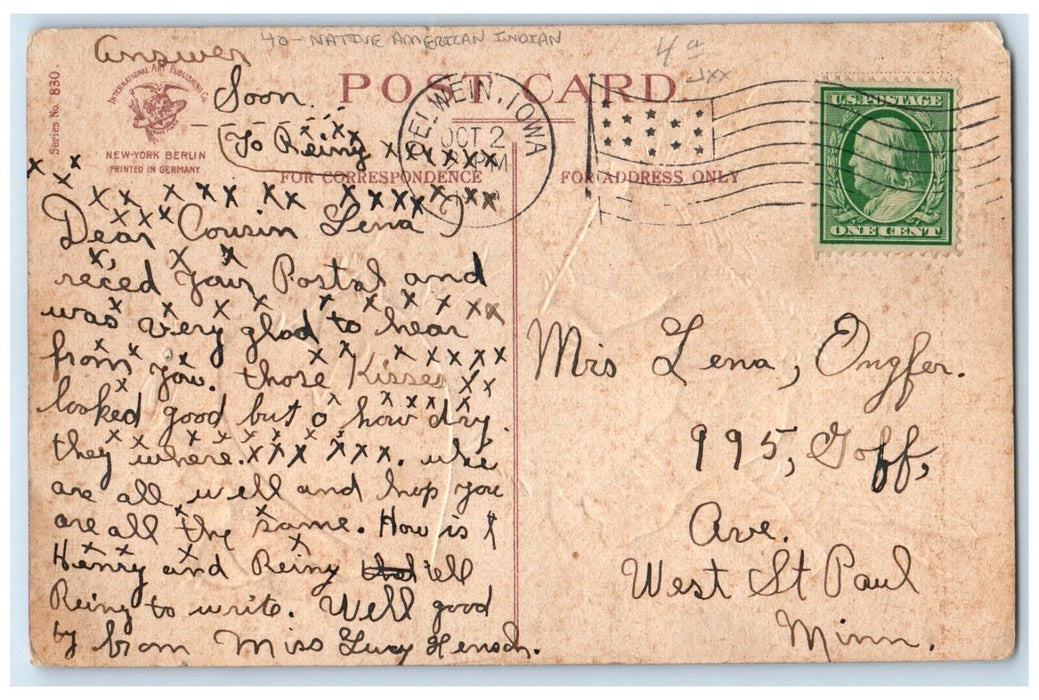 40 - NATIVE AMERICAN INDIAN
4
Answer
Soon.
To Reiny xxxxxx
Series No. 830.
INTERNATIONAL ART PUBLISHING CO.
NEW-YORK BERLIN
PRINTED IN GERMANY
POST CARD
FOR CORRESPONDENCE
FOR ADDRESS ONLY
OELWEIN, IOWA
OCT 2
PM
U.S. POSTAGE
ONE CENT
Dear Cousin Lena
reced your Postal and
was very glad to hear
from you. those Kisses
looked good but o how dry.
they where. xxx xxx. whe
are all well and hop you
are all the same. How is
Henry and Reiny tell
Reiny to write. Well good
by from Miss Lucy Hensch.
Mrs Lena, Ongfer.
995, Goff,
Ave.
West St Paul
Minn.